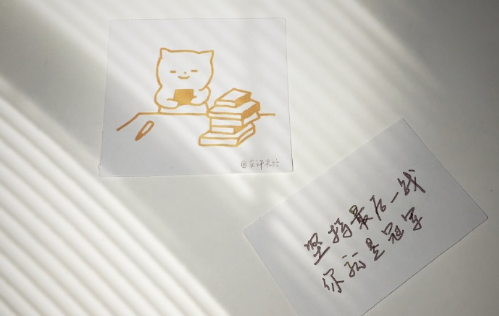 坚持最后一线
你就是冠军